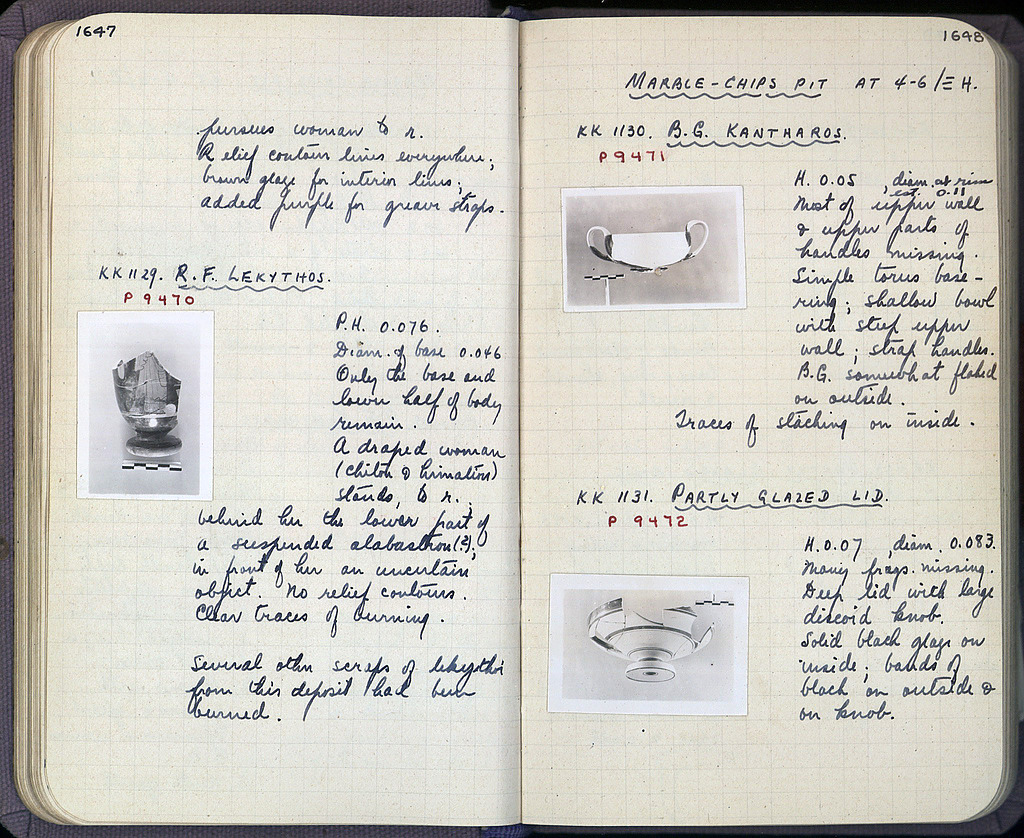 1647
pursues woman to r.
Relief contour lines everywhere;
brown glaze for interior lines;
added purple for greave straps.
KK 1129. R.F. LEKYTHOS.
P 9470
P.H. 0.076.
Diam. of base 0.046
Only the base and
lower half of body
remain.
A draped woman
(chiton & himation)
stands, to r.;
behind her the lower part of
a suspended alabastron(?);
in front of her an uncertain
object. No relief contours.
Clear traces of burning.
Several other scraps of lekythoi
from this deposit had been
burned.
1648
MARBLE-CHIPS PIT AT 4-6/Ξ H.
KK 1130. B.G. KANTHAROS.
P 9471
H. 0.05, diam. at rim
est. 0.11
Most of upper wall
& upper parts of
handles missing.
Simple torus base-
ring; shallow bowl
with steep upper
wall; strap handles.
B.G. somewhat flaked
on outside.
Traces of stacking on inside.
KK 1131. PARTLY GLAZED LID.
P 9472
H. 0.07, diam. 0.083.
Many frags. missing.
Deep lid with large
discoid knob.
Solid black glaze on
inside; bands of
black on outside &
on knob.